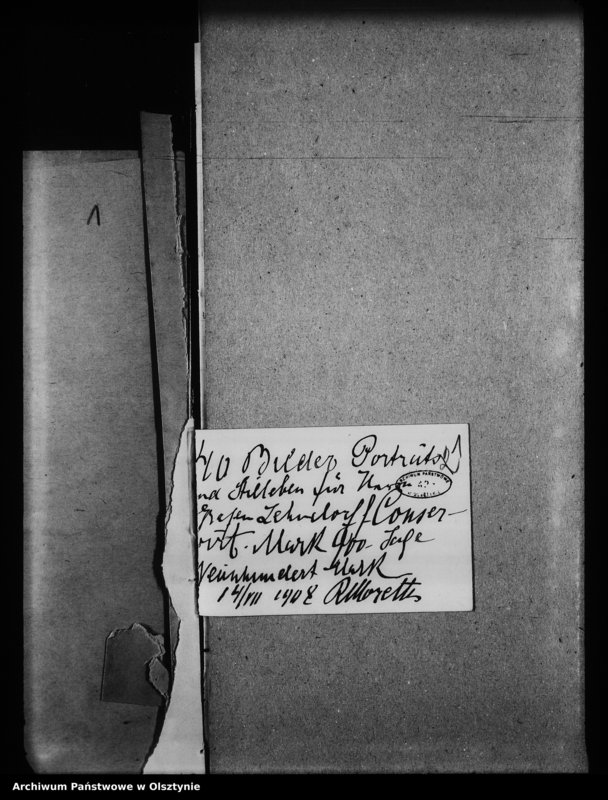 1
40 Bilder Porträts
nd Stilleben für Herrn
Grafen Lehndorff Conser-
virt. Mark 900 Sage
Neunhundert Mark
14/VII 1908
Archiwum Państwowe w Olsztynie